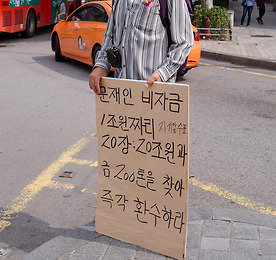 문재인 비자금
1조원짜리
20장:20조원과
금 200톤을 찾아
즉각 환수하라